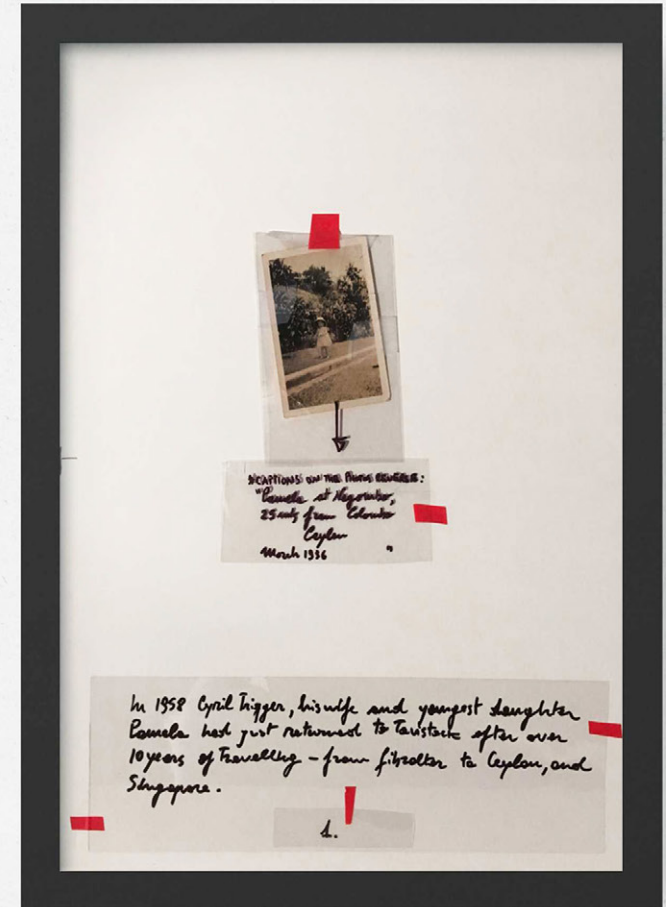 CAPTIONS ON THE PHOTO REVERSE:
"Pamela at Negombo,
25 mls from Colombo
Ceylon
March 1936 "
In 1958 Cyril Trigger, his wife and youngest daughter
Pamela had just returned to Tavistock after over
10 years of Travelling – from Gibraltar to Ceylon, and
Singapore.
1.